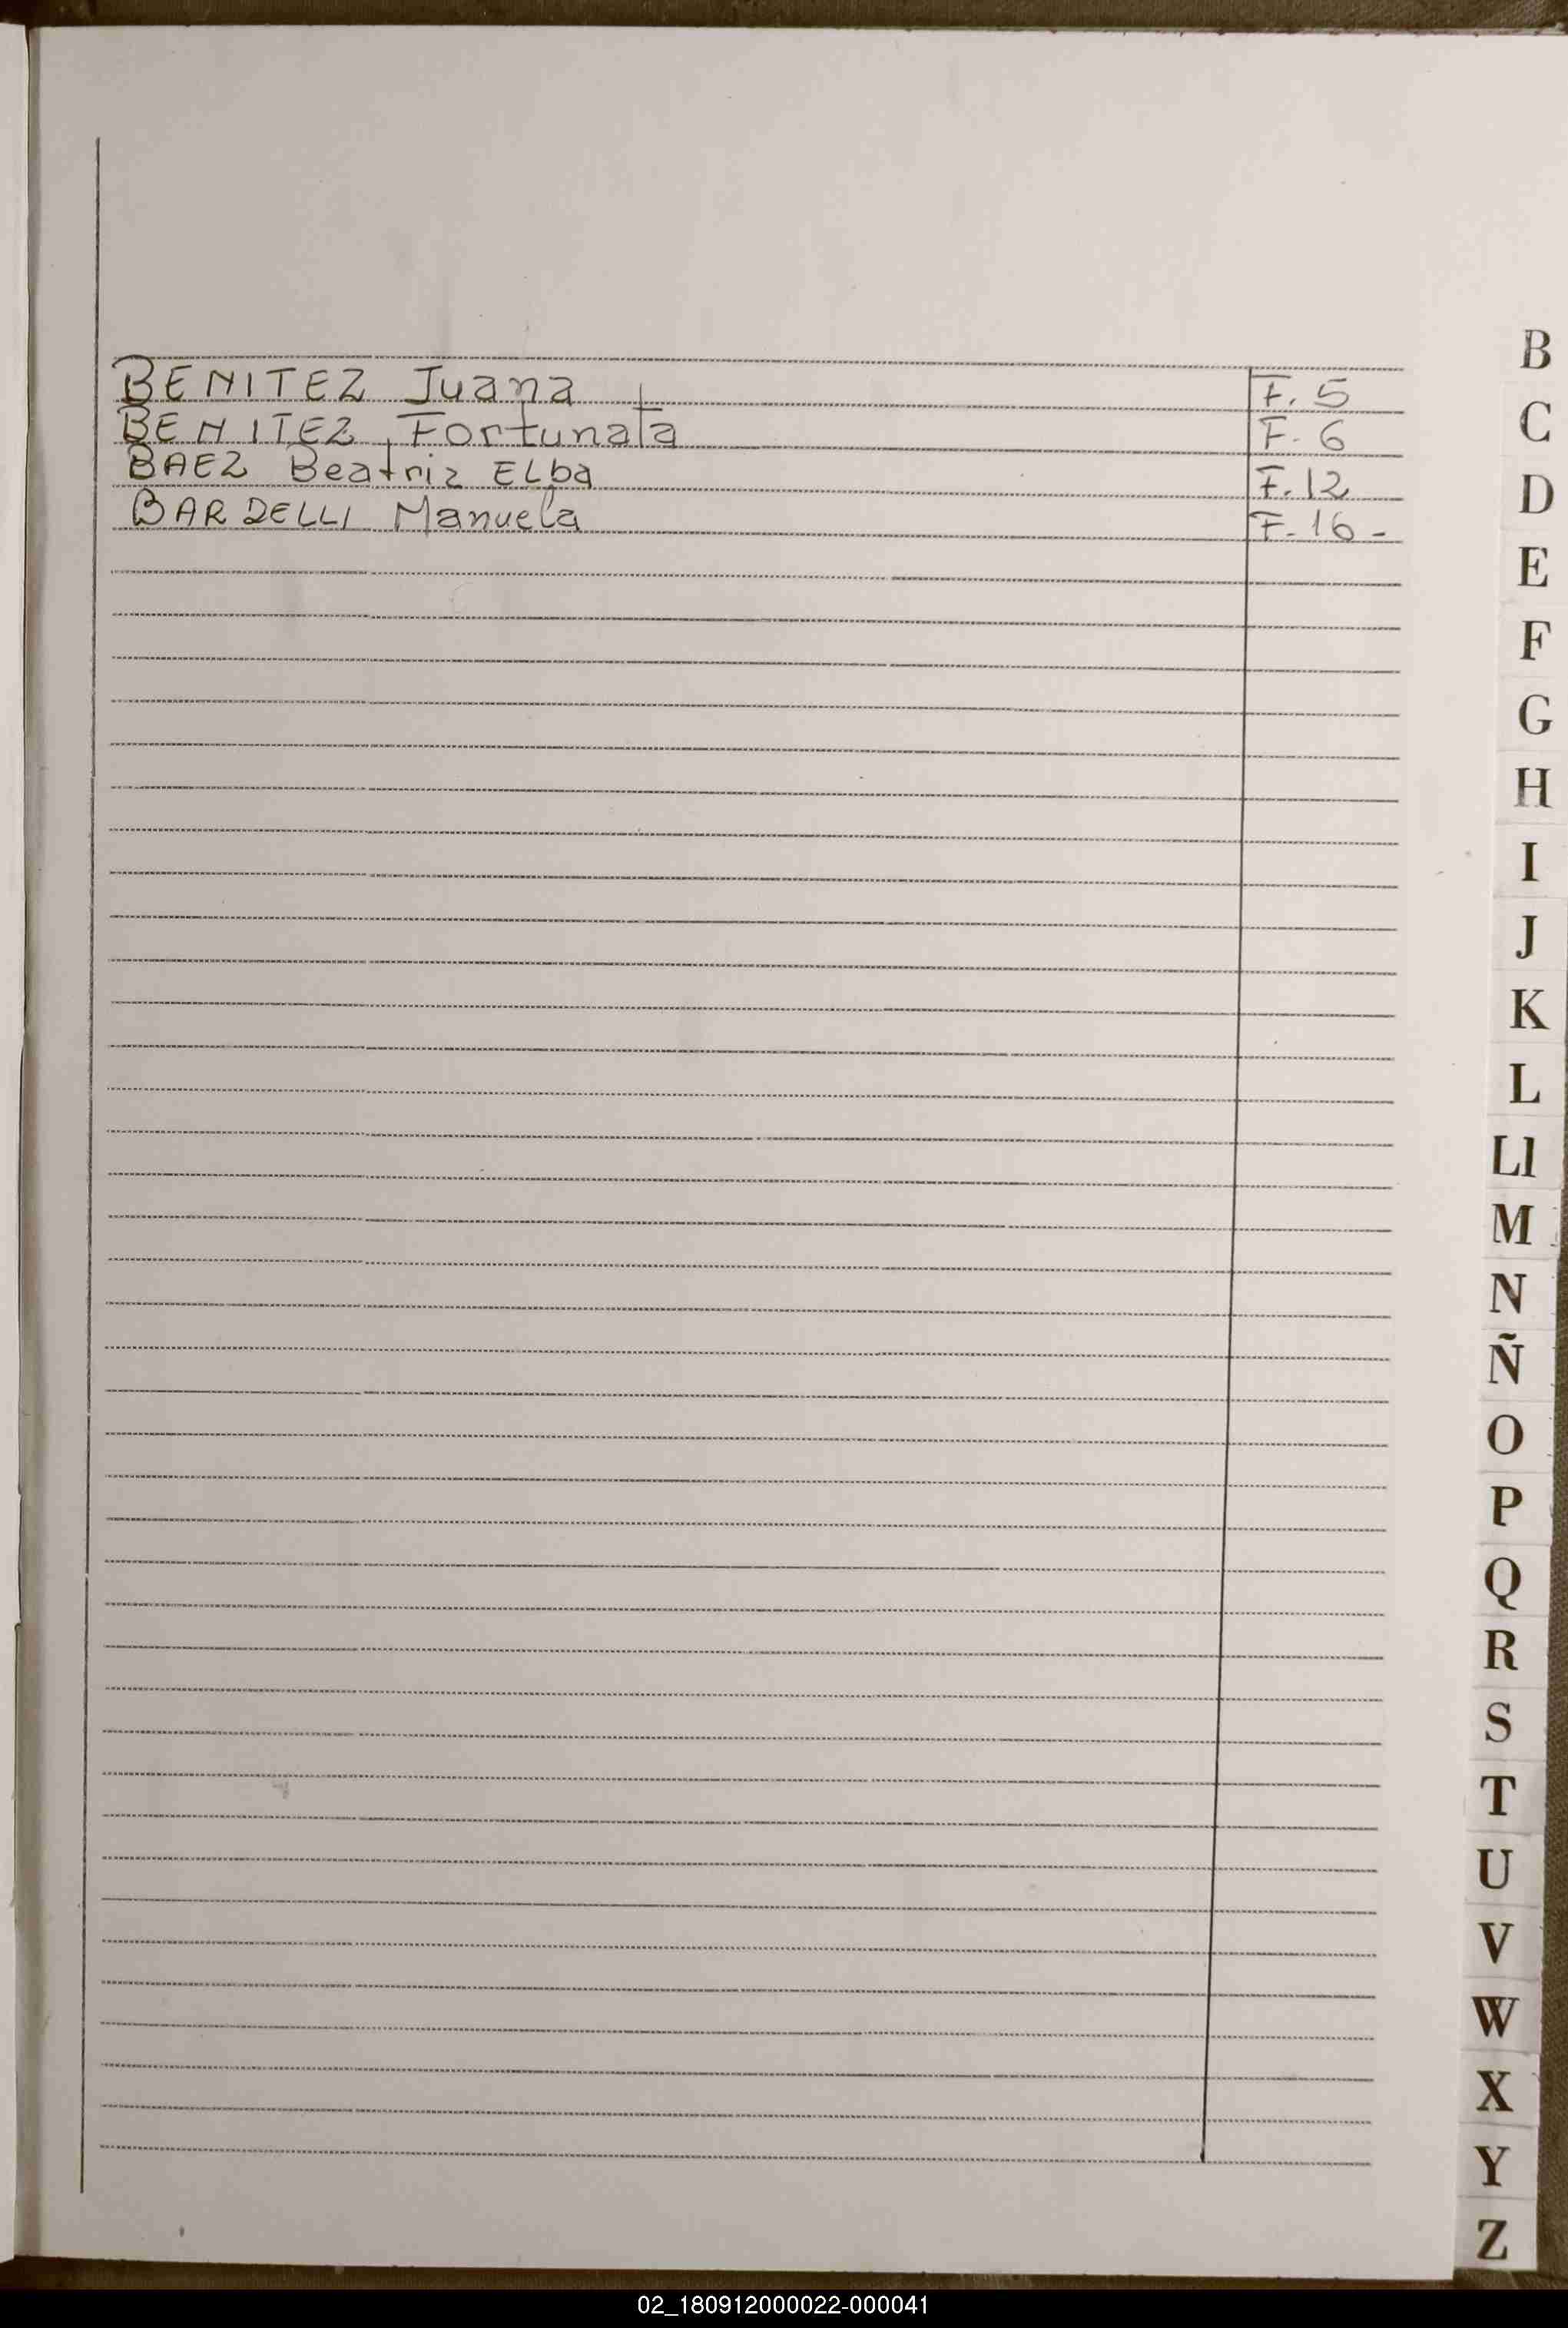 BENITEZ Juana F. 5
BENITEZ, Fortunata F. 6
BAEZ Beatriz ELba F. 12
BARDELLI Manuela F. 16 -
B
C
D
E
F
G
H
I
J
K
L
Ll
M
N
Ñ
O
P
Q
R
S
T
U
V
W
X
Y
Z
02_180912000022-000041